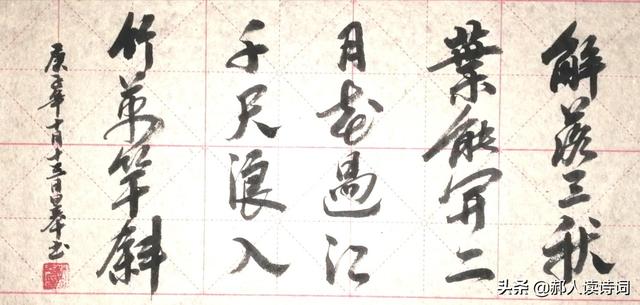 解落三秋
葉能開二
月花過江
千尺浪入
竹萬竿斜
庚子年十月十日書
头条 @郝人读诗词